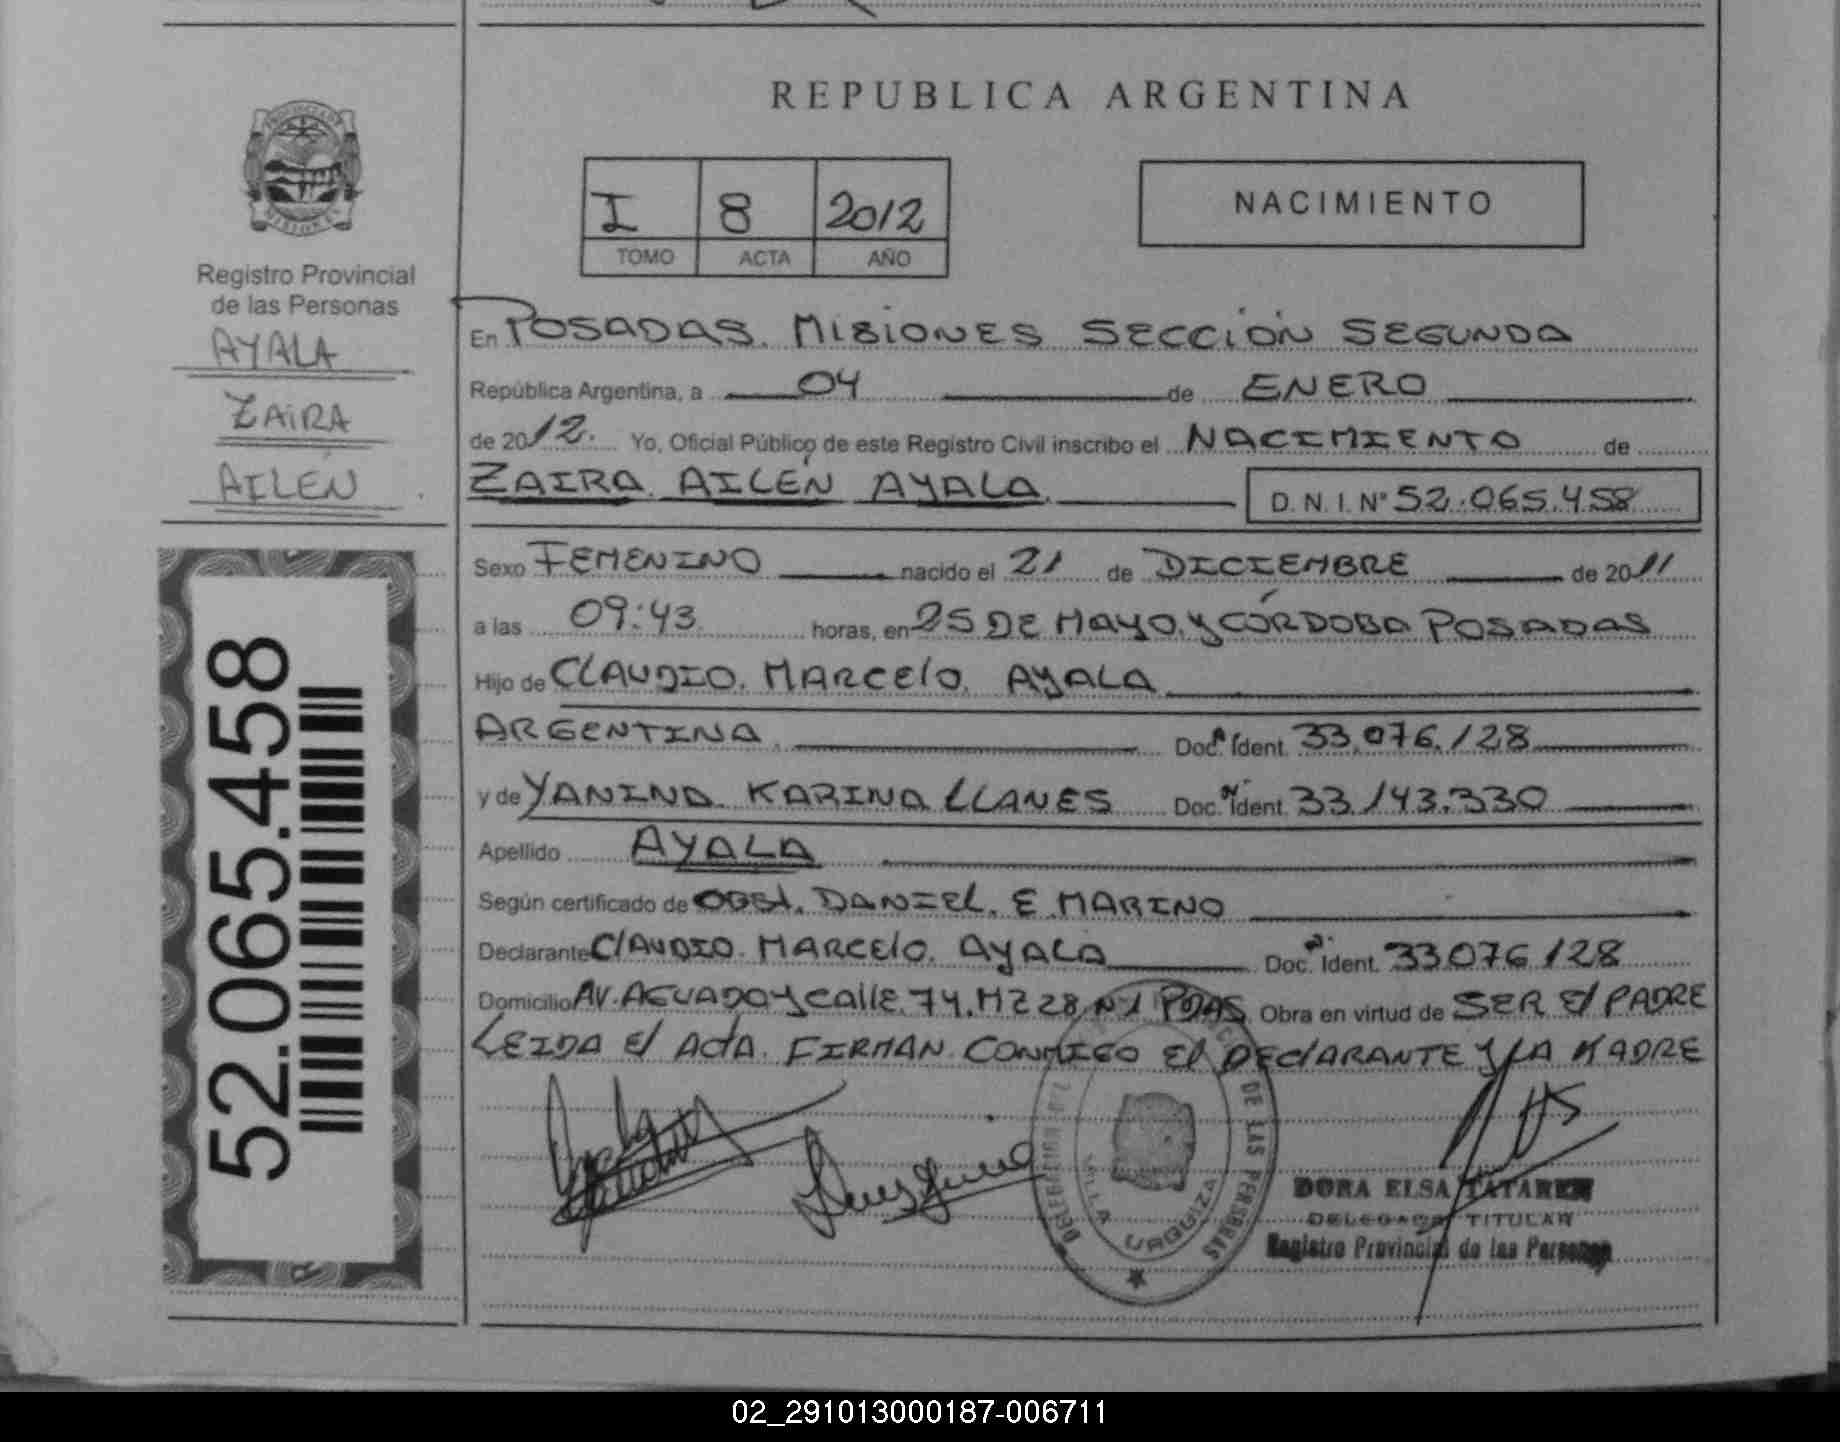 REPUBLICA ARGENTINA
I 8 2012
TOMO ACTA AÑO
NACIMIENTO
Registro Provincial
de las Personas
AYALA
ZAIRA
AILÉN
52.065.458
En POSADAS. MISIONES SECCIÓN SEGUNDA
República Argentina, a 04 de ENERO
de 2012. Yo, Oficial Público de este Registro Civil inscribo el NACIMIENTO de
ZAIRA AILÉN AYALA. D. N. I. Nº 52.065.458
Sexo FEMENINO nacido el 21 de DICIEMBRE de 2011
a las 09:43 horas, en 25 DE MAYO y CÓRDOBA POSADAS
Hijo de CLAUDIO. MARCElO. AYALA
ARGENTINA. Doc. Ident. 33.076.128
y de YANINA KARINA LLANES Doc. Ident. 33.143.330
Apellido AYALA
Según certificado de OBSt. DANIEL. E MARINO
Declarante ClAUDIO. MARCElO. AYALA Doc. Ident. 33076128
Domicilio AV. AGUADO y CAllE 74. MZ 28 Nº1 PDAS. Obra en virtud de SER El PADRE
LEIDA El ActA. FIRMAN CONMIGO El DEClARANTE Y lA MADRE
DE LAS PERSONAS
VILLA URQUIZA
DORA ELSA TATAREN
DELEGADA TITULAR
Registro Provincial de las Personas
02_291013000187-006711